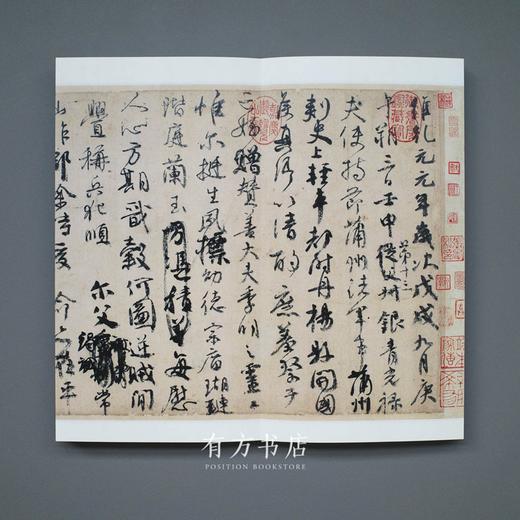 維乾元元年歲次戊戌九月庚
午朔三日壬申從父第十三叔銀青光祿
夫使持節蒲州諸軍事蒲州
刺史上輕車都尉丹楊縣開國
侯真卿以清酌庶羞祭于
亡姪贈贊善大夫季明之靈曰
惟爾挺生夙標幼德宗廟瑚璉
階庭蘭玉每慰
人心方期戩穀何圖逆賊閒
釁稱兵犯順爾父竭誠常
山作郡余時受命亦在平
有方书店
POSITION BOOKSTORE